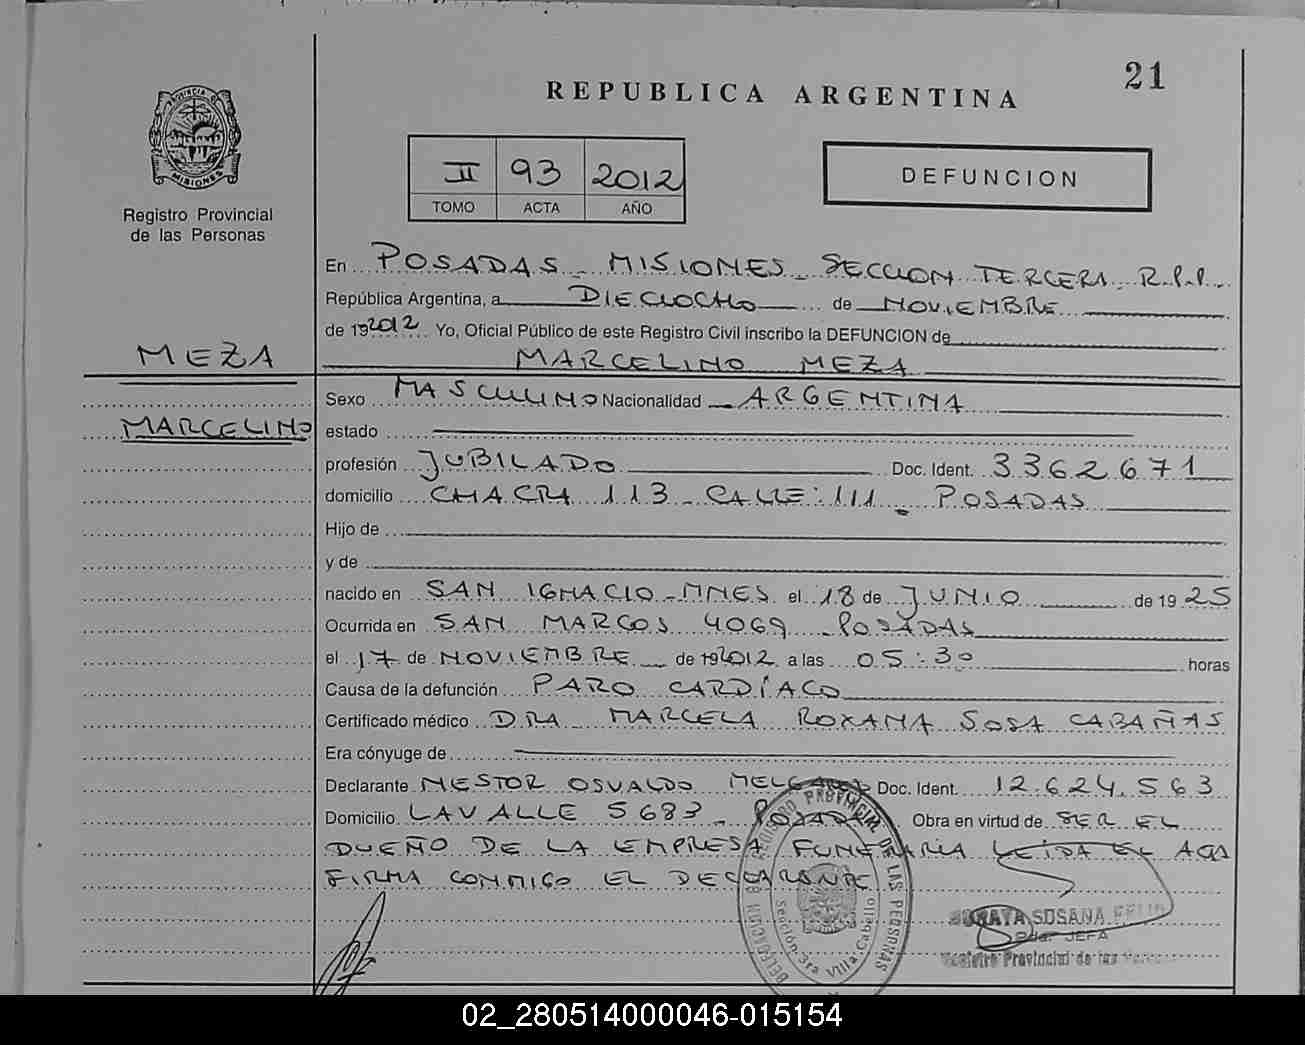 21
REPUBLICA ARGENTINA
PROVINCIA D
MISIONES
Registro Provincial
de las Personas
II 93 2012
TOMO ACTA AÑO
DEFUNCION
En POSADAS - MISIONES - SECCION TERCERA R.P.P.
República Argentina, a DIECIOCHO de NOVIEMBRE
de 192012 Yo, Oficial Público de este Registro Civil inscribo la DEFUNCION de
MARCELINO MEZA
MEZA
MARCELINO
Sexo MASCULINO Nacionalidad ARGENTINA
estado
profesión JUBILADO Doc. Ident. 3362671
domicilio CHACRA 113 - CALLE: 111 - POSADAS
Hijo de
y de
nacido en SAN IGNACIO - MNES el 18 de JUNIO de 1925
Ocurrida en SAN MARCOS 4069 - POSADAS
el 17 de NOVIEMBRE de 192012 a las 05:30 horas
Causa de la defunción PARO CARDÍACO
Certificado médico DRA MARCELA ROXANA SOSA CABAÑAS
Era cónyuge de
Declarante NESTOR OSVALDO Doc. Ident. 12.624.563
Domicilio LAVALLE 5683 - POSADAS Obra en virtud de SER EL
DUEÑO DE LA EMPRESA FUNERARIA LEIDA EL ACTA
FIRMA CONMIGO EL DECLARANTE
REGISTRO PROVINCIAL DE LAS PERSONAS
Sección 3ra Villa Cabello
SUSANA
JEFA
Registro Provincial de las
02_280514000046-015154